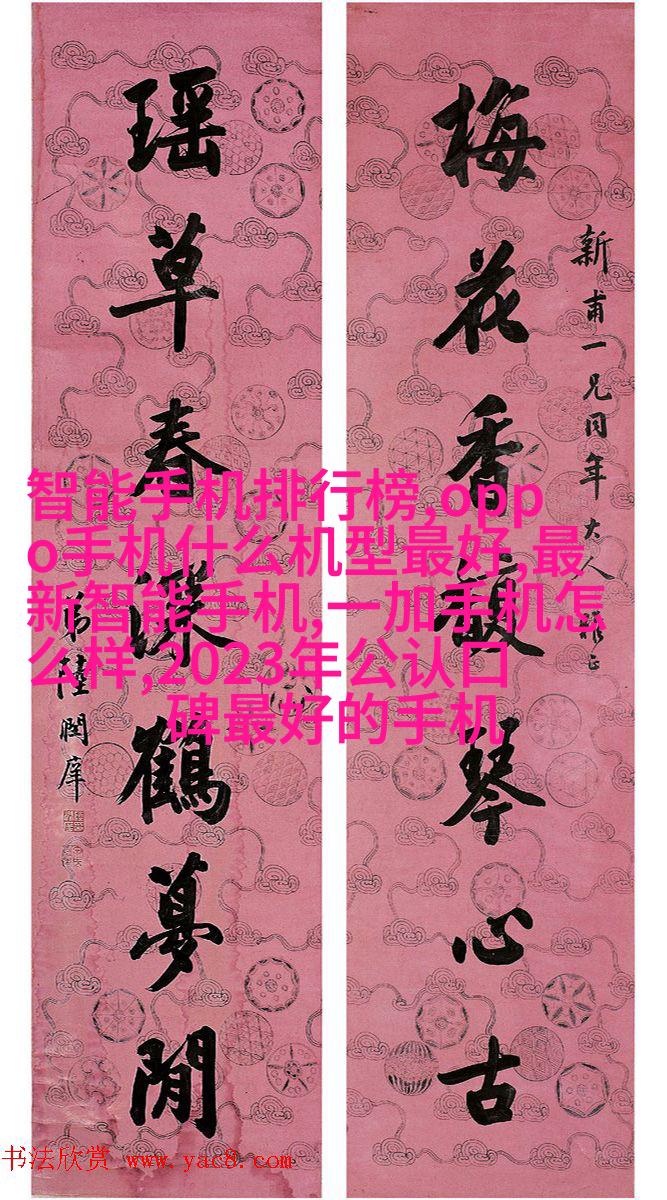 新甫一兄同年大人雅正
梅花香馥琴心古
瑤草春深鶴夢閒
弟陸潤庠
智能手机排行榜,opp
o手机什么机型最好,最
新智能手机,一加手机怎
么样,2023年公认口
碑最好的手机
书法欣赏 www.yac8.com